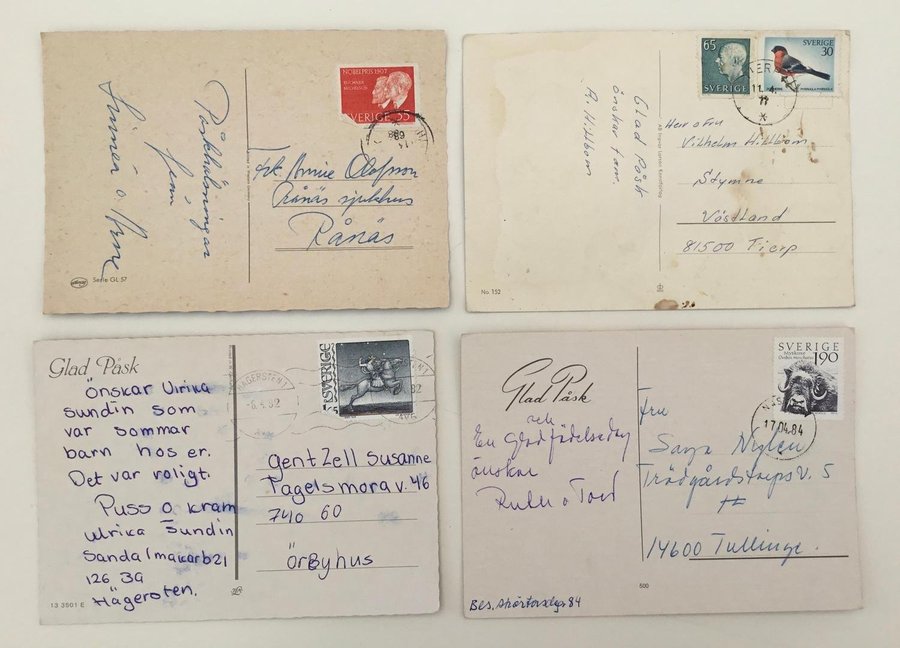 Påskhälsningar
från
Serie GL 57
NOBELPRIS 1907
BUCHNER
MICHELSON
SVERIGE 55
Olofsson
Rånäs sjukhus
Rånäs
Glad Påsk
önskar fam.
A. Hillbom
No. 152
65
SVERIGE
SVERIGE
30
11.4.
Herr o Fru
Vilhelm Hillbom
Stymne
Västland
81500 Tierp
Glad Påsk
önskar Ulrika
sundin som
var sommar
barn hos er.
Det var roligt.
Puss o kram
ulrika sundin
126 39
Hägersten.
13 3501 E
SVERIGE
165
HÄGERSTEN 1
-6.4.82
gent Zell Susanne
Tagelsmorav. 46
740 60
Örbyhus
Glad Påsk
och
En Glad födelsedag
önskar
500
SVERIGE
Myskoxe
1.90
17.04.84
Fru
Nylén
Trädgårdstorpsv. 5
14600 Tullinge.